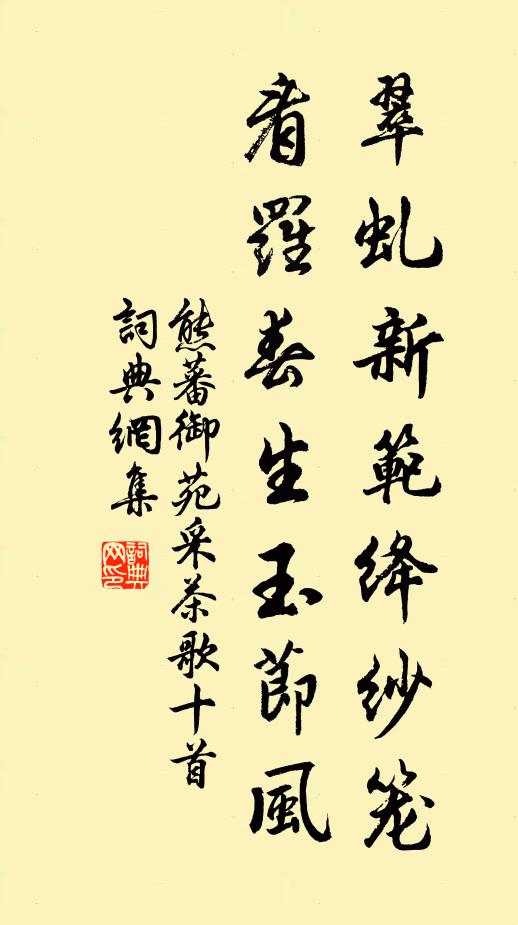 翠虬新範绛纱笼
看羅春生玉節風
熊蕃御苑采茶歌十首
詞典網集
詞典网印